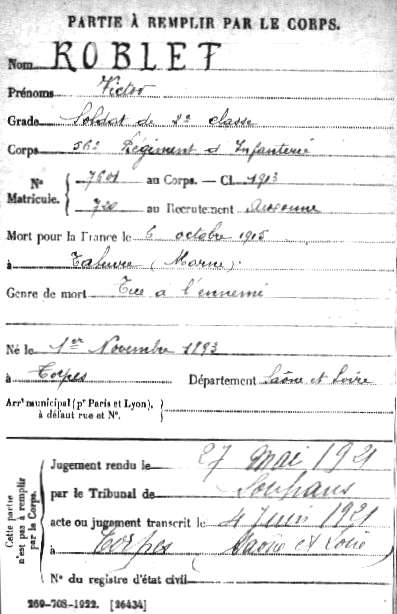 PARTIE À REMPLIR PAR LE CORPS.
Nom ROBLET
Prénoms Victor
Grade Soldat de 2e classe
Corps 56e Régiment d'Infanterie
N° Matricule. 7601 au Corps. — Cl. 1913
720 au Recrutement Auxonne
Mort pour la France le 6 octobre 1915
à Tahure (Marne).
Genre de mort Tué à l'ennemi
Né le 1er Novembre 1893
à Torpes Département Saône et Loire
Arrt municipal (pr Paris et Lyon),
à défaut rue et N°.
Cette partie n'est pas à remplir par le Corps.
Jugement rendu le 27 Mai 1921
par le Tribunal de Louhans
acte ou jugement transcrit le 4 Juin 1921
à Torpes (Saône et Loire
N° du registre d'état civil
269-708-1922. [26434]